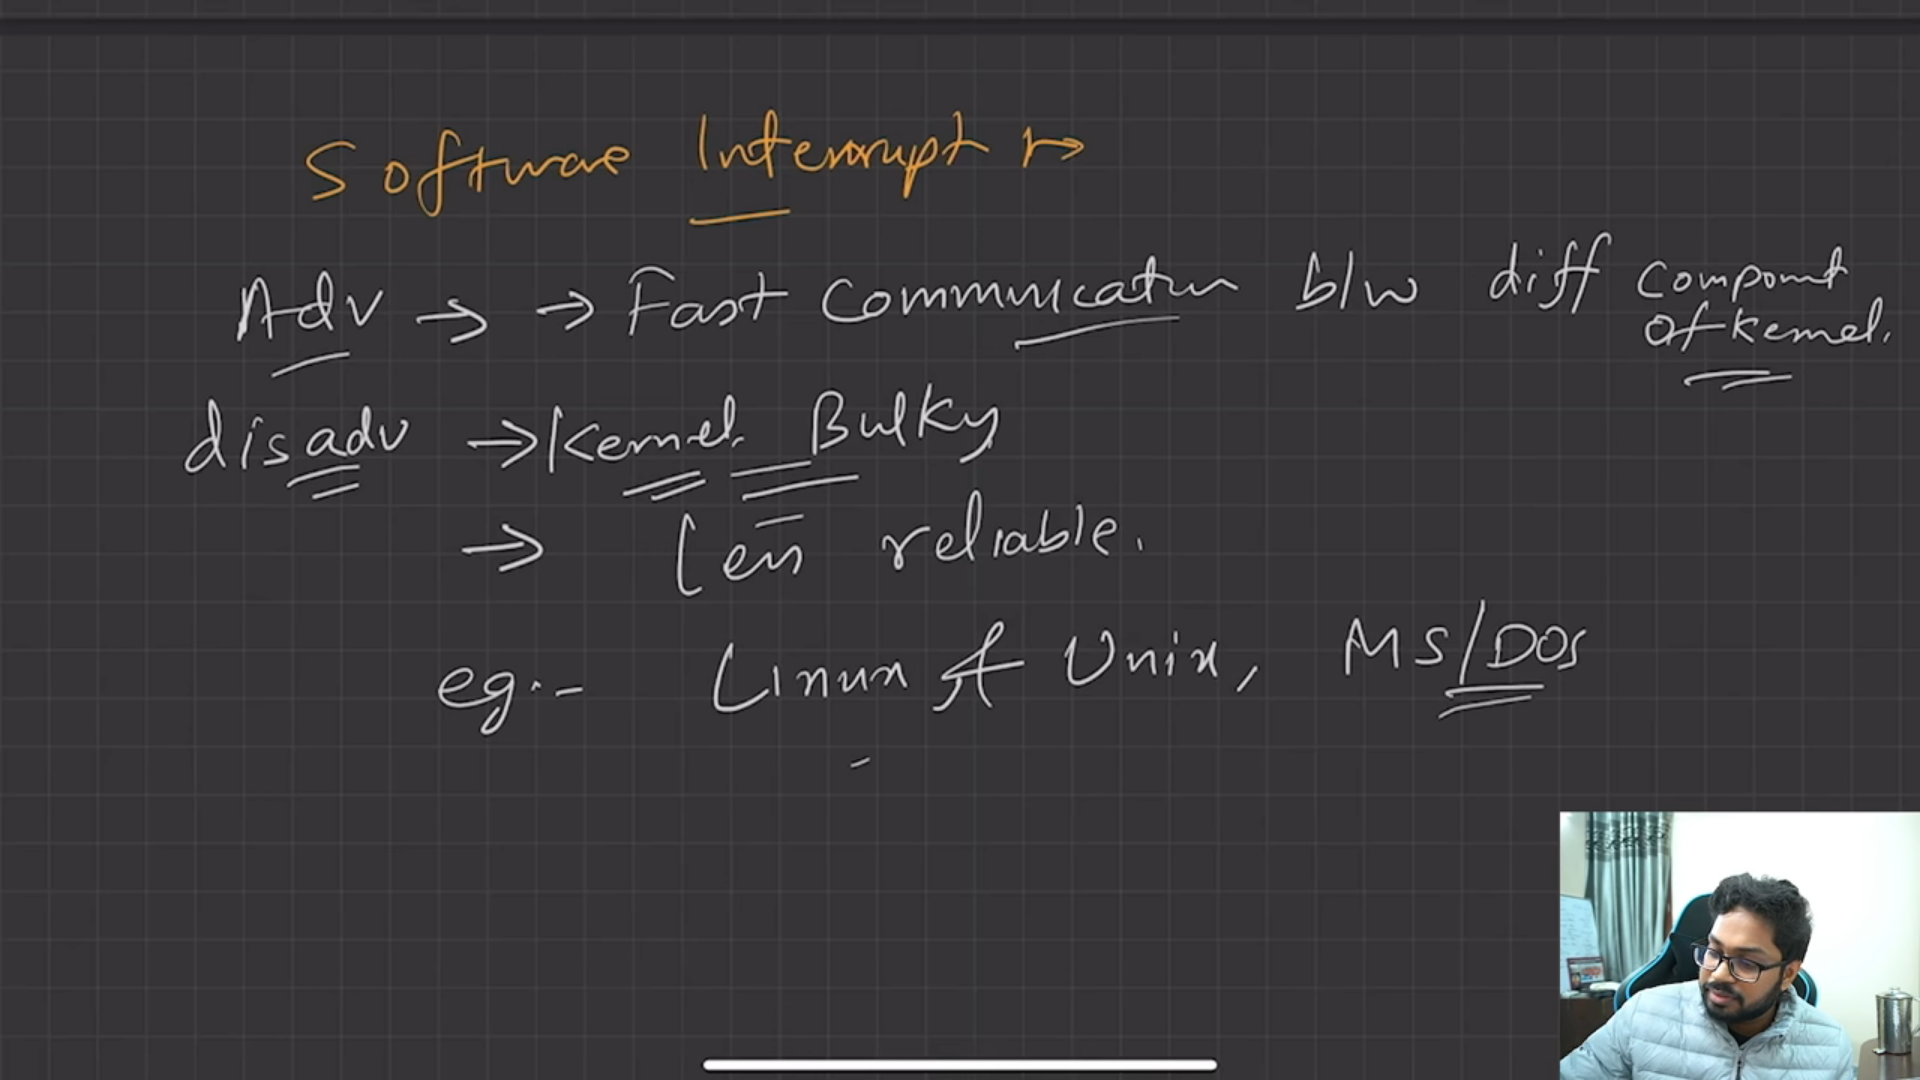 Software Interrupt →
Adv → → Fast Communication b/w diff Component of Kernel.
disadv → Kernel Bulky
→ Less reliable.
eg:- Linux & Unix, MS/DOS